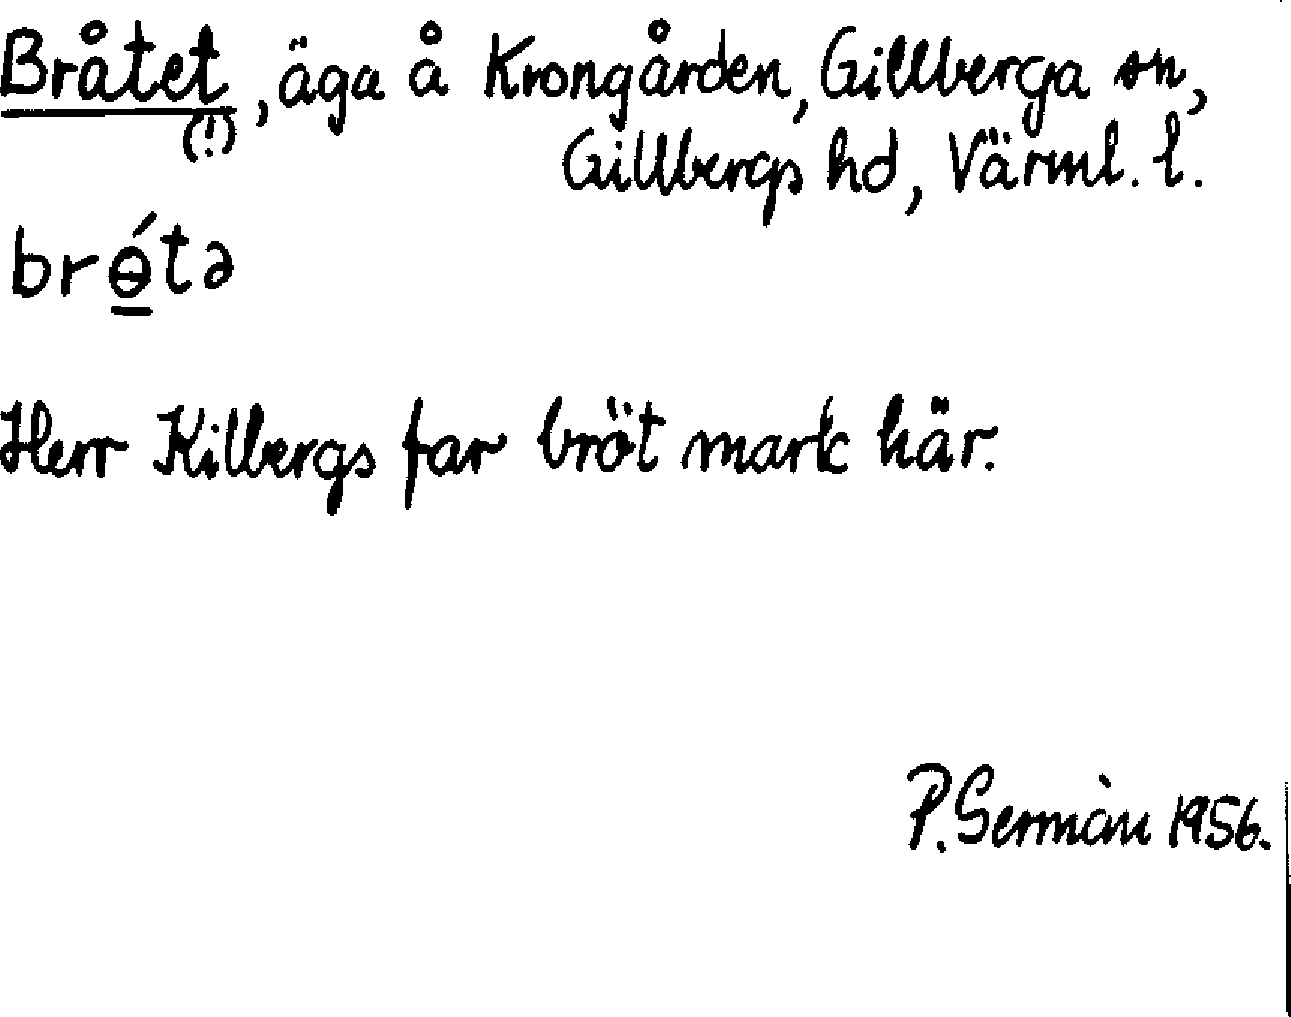 Bråtet, äga å Krongården, Gillberga sn,
(!) Gillbergs hd, Värml. l.
brɵ́tə
Herr Kilbergs far bröt mark här.
P. Sermàn 1956.